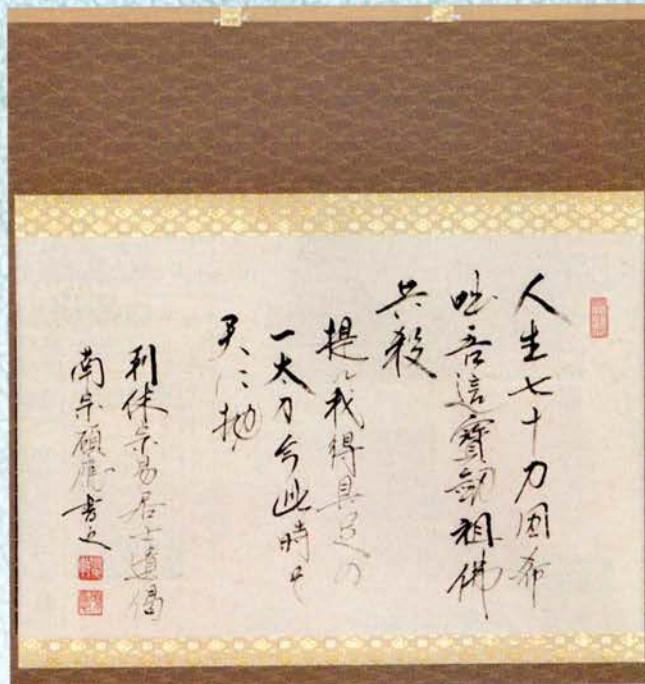 人生七十力囲希
咄吾這寳剱祖佛
共殺
提ル我得具足の
一太刀今此時そ
天ニ抛
利休宗易居士遺偈
南宗顧應書之